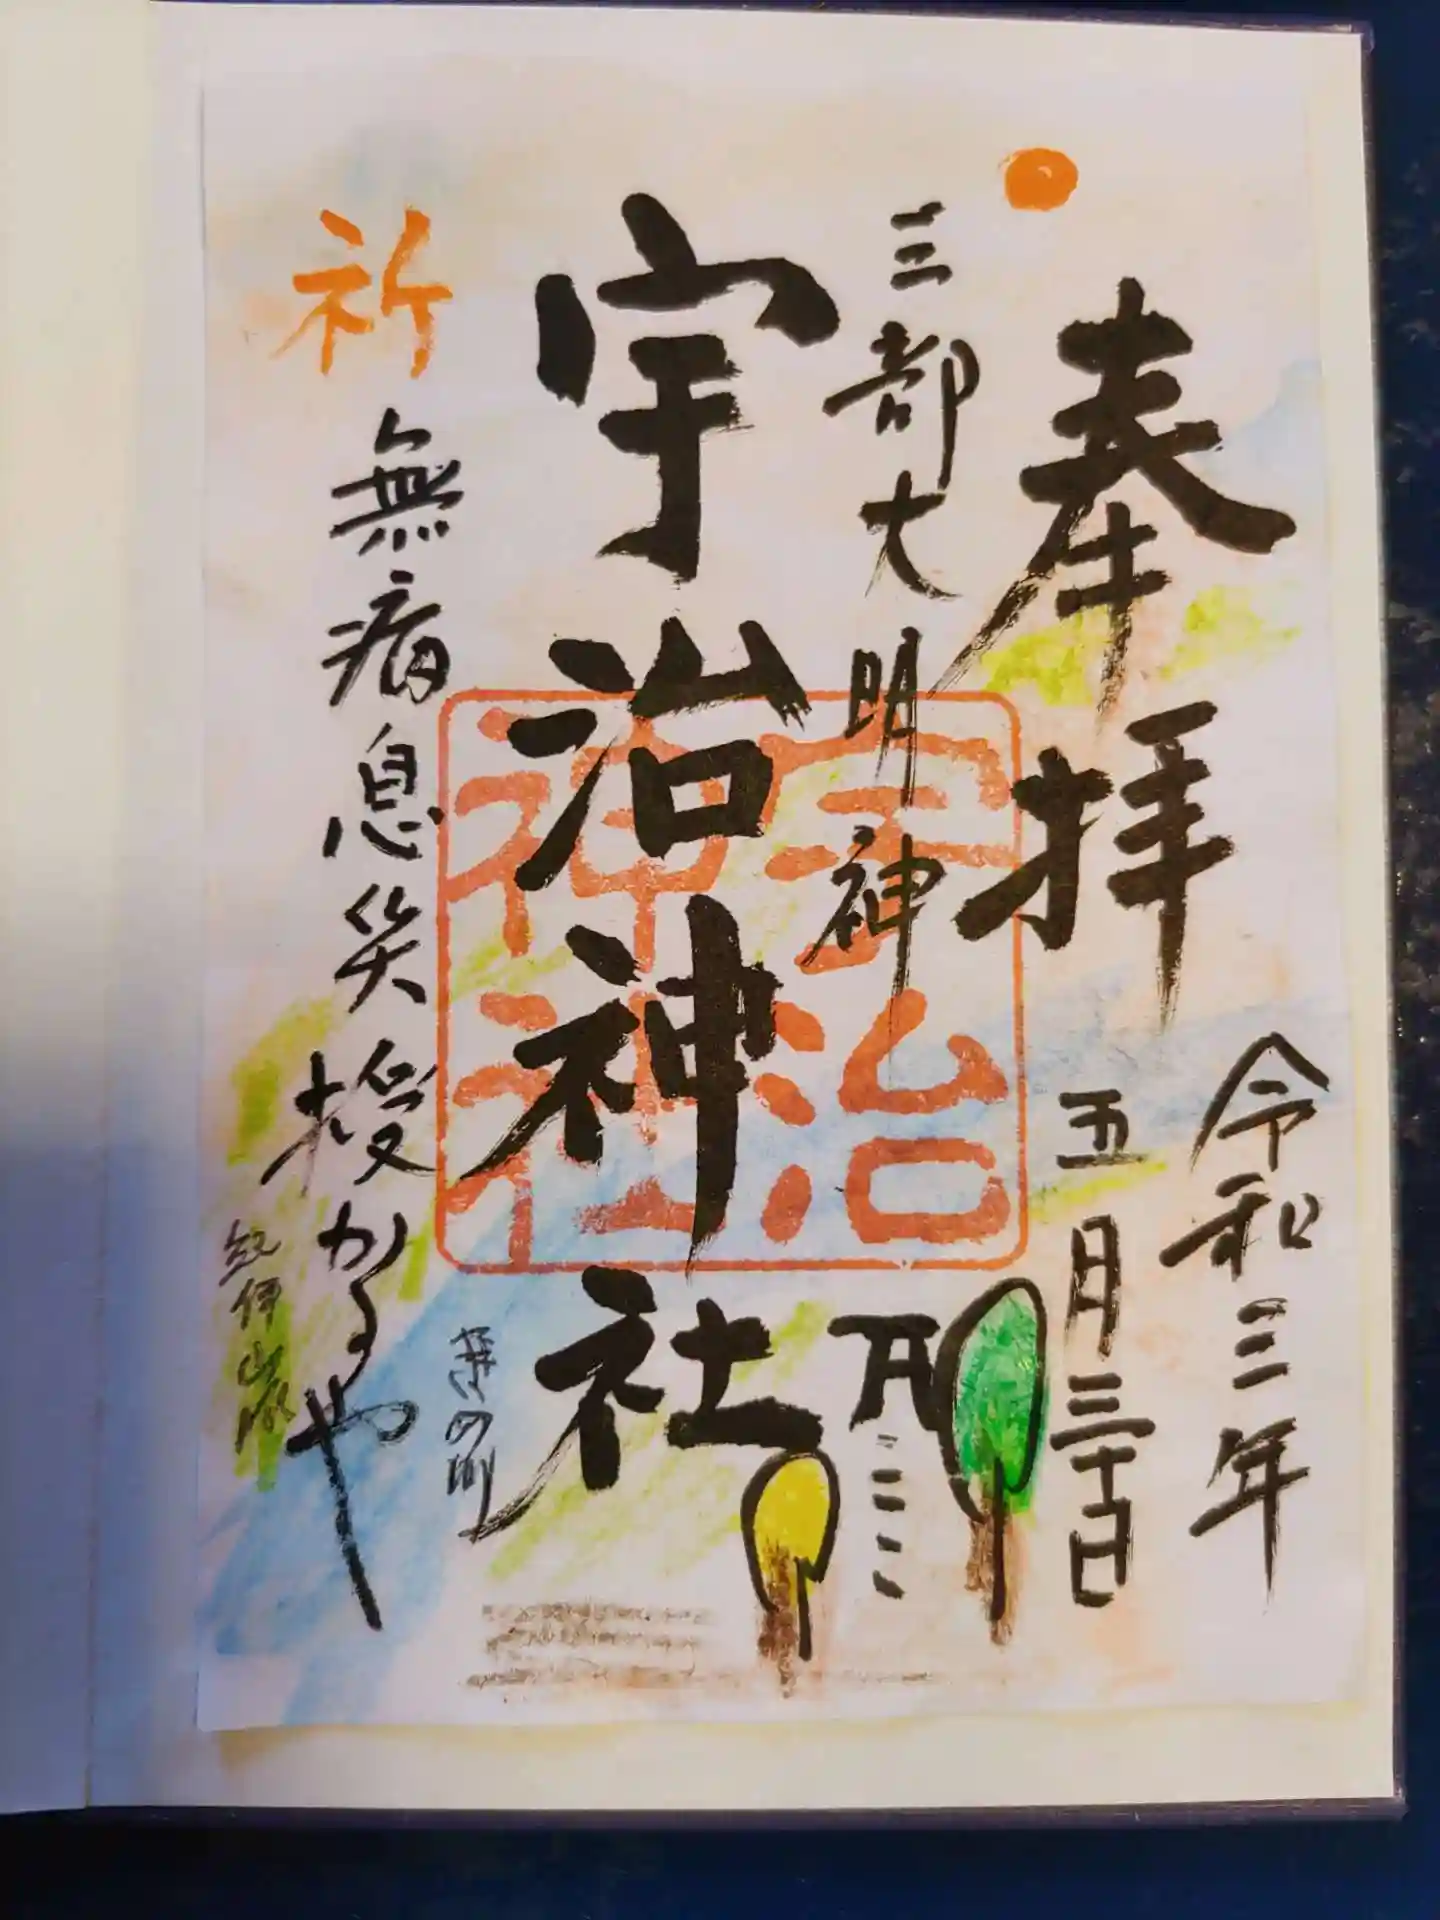 奉拝
令和三年
五月三十日
三部大明神
宇治神社
宇治
神社
祈
無病息災授かるや
紀伊山脈
紀の川